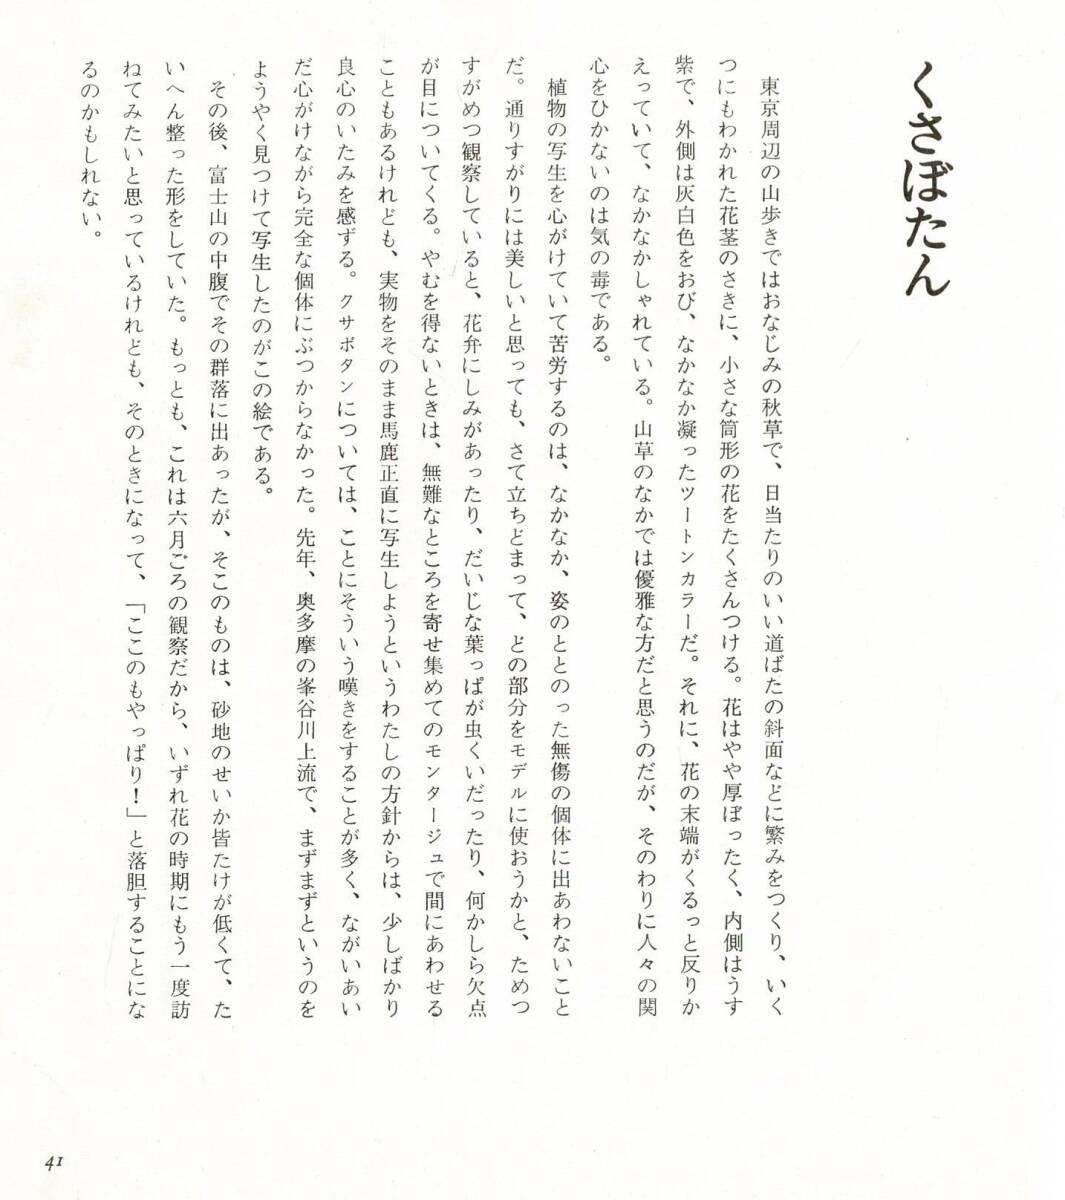 くさぼたん
東京周辺の山歩きではおなじみの秋草で、日当たりのいい道ばたの斜面などに繁みをつくり、いく
つにもわかれた花茎のさきに、小さな筒形の花をたくさんつける。花はやや厚ぼったく、内側はうす
紫で、外側は灰白色をおび、なかなか凝ったツートンカラーだ。それに、花の末端がくるっと反りか
えっていて、なかなかしゃれている。山草のなかでは優雅な方だと思うのだが、そのわりに人々の関
心をひかないのは気の毒である。
植物の写生を心がけていて苦労するのは、なかなか、姿のととのった無傷の個体に出あわないこと
だ。通りすがりには美しいと思っても、さて立ちどまって、どの部分をモデルに使おうかと、ためつ
すがめつ観察していると、花弁にしみがあったり、だいじな葉っぱが虫くいだったり、何かしら欠点
が目についてくる。やむを得ないときは、無難なところを寄せ集めてのモンタージュで間にあわせる
こともあるけれども、実物をそのまま馬鹿正直に写生しようというわたしの方針からは、少しばかり
良心のいたみを感ずる。クサボタンについては、ことにそういう嘆きをすることが多く、ながいあい
だ心がけながら完全な個体にぶつからなかった。先年、奥多摩の峯谷川上流で、まずまずというのを
ようやく見つけて写生したのがこの絵である。
その後、富士山の中腹でその群落に出あったが、そこのものは、砂地のせいか皆たけが低くて、た
いへん整った形をしていた。もっとも、これは六月ごろの観察だから、いずれ花の時期にもう一度訪
ねてみたいと思っているけれども、そのときになって、「ここのもやっぱり！」と落胆することにな
るのかもしれない。
41